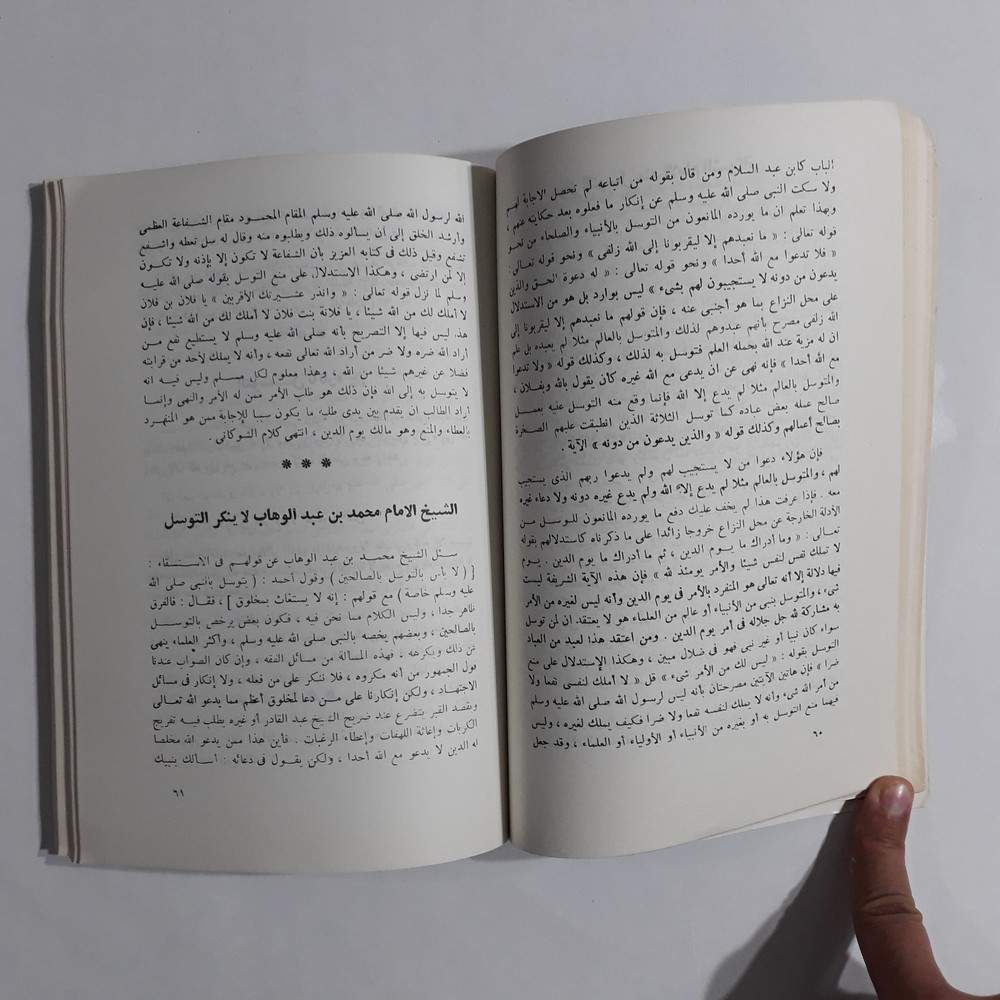 الباب كابن عبد السلام ومن قال بقوله من اتباعه لم تحصل الاجابة لهم
ولا سكت النبى صلى الله عليه وسلم عن إنكار ما فعلوه بعد حكايته عنهم ،
وبهذا تعلم ان ما يورده المانعون من التوسل بالأنبياء والصلحاء من نحو
قوله تعالى : « ما نعبدهم إلا ليقربونا إلى الله زلفى » ونحو قوله تعالى :
« فلا تدعوا مع الله أحدا » ونحو قوله تعالى : « له دعوة الحق والذين
يدعون من دونه لا يستجيبون لهم بشىء » ليس بوارد بل هو من الاستدلال
على محل النزاع بما هو أجنبى عنه ، فإن قولهم ما نعبدهم إلا ليقربونا إلى
الله زلفى مصرح بأنهم عبدوهم لذلك والمتوسل بالعالم مثلا لم يعبده بل علم
ان له مزية عند الله بحمله العلم فتوسل به لذلك ، وكذلك قوله « ولا تدعوا
مع الله أحدا » فإنه نهى عن ان يدعى مع الله غيره كأن يقول بالله وبفلان ،
والمتوسل بالعالم مثلا لم يدع إلا الله فإنما وقع منه التوسل عليه بعمل
صالح عمله بعض عباده كما توسل الثلاثة الذين انطبقت عليهم الصخرة
بصالح أعمالهم وكذلك قوله « والذين يدعون من دونه » الآية .
فإن هؤلاء دعوا من لا يستجيب لهم ولم يدعوا ربهم الذى يستجيب
لهم ، والمتوسل بالعالم مثلا لم يدع إلا الله ولم يدع غيره دونه ولا دعاء غيره
معه . فإذا عرفت هذا لم يخف عليك دفع ما يورده المانعون للتوسل من
الأدلة الخارجة عن محل النزاع خروجا زائدا على ما ذكرناه كاستدلالهم بقوله
تعالى : « وما أدراك ما يوم الدين ، ثم ما أدراك ما يوم الدين . يوم
لا تملك نفس لنفس شيئا والأمر يومئذ لله » فإن هذه الآية الشريفة ليست
فيها دلالة إلا أنه تعالى هو المنفرد بالأمر فى يوم الدين وأنه ليس لغيره من الأمر
شىء ، والمتوسل بنبى من الأنبياء أو عالم من العلماء هو لا يعتقد ان لمن توسل
به مشاركة لله جل جلاله فى أمر يوم الدين . ومن اعتقد هذا لعبد من العباد
سواء كان نبيا أو غير نبى فهو فى ضلال مبين ، وهكذا الإستدلال على منع
التوسل بقوله : « ليس لك من الأمر شىء » قل « لا أملك لنفسى نفعا ولا
ضرا » فإن هاتين الآيتين مصرحتان بأنه ليس لرسول الله صلى الله عليه وسلم
من أمر الله شىء وأنه لا يملك لنفسه نفعا ولا ضرا فكيف يملك لغيره ، وليس
فيهما منع التوسل به أو بغيره من الأنبياء أو الأولياء أو العلماء ، وقد جعل
٦٠
الله لرسول الله صلى الله عليه وسلم المقام المحمود مقام الشفاعة العظمى
وأرشد الخلق إلى أن يسألوه ذلك ويطلبوه منه وقال له سل تعطه واشفع
تشفع وقيل ذلك فى كتابه العزيز بأن الشفاعة لا تكون إلا بإذنه ولا تكون
إلا لمن ارتضى ، وهكذا الاستدلال على منع التوسل بقوله صلى الله عليه
وسلم لما نزل قوله تعالى : « وانذر عشيرتك الأقربين » يا فلان بن فلان
لا أملك لك من الله شيئا ، يا فلانة بنت فلان لا أملك لك من الله شيئا ، فإن
هذا ليس فيها إلا التصريح بأنه صلى الله عليه وسلم لا يستطيع نفع من
أراد الله ضره ولا ضر من أراد الله تعالى نفعه ، وأنه لا يملك لأحد من قرابته
فضلا عن غيرهم شيئا من الله ، وهذا معلوم لكل مسلم وليس فيه انه
لا يتوسل به إلى الله فإن ذلك هو طلب الأمر ممن له الأمر والنهى وإنما
اراد الطالب ان يقدم بين يدى طلبه ما يكون سببا للإجابة ممن هو المنفرد
بالعطاء والمنع وهو مالك يوم الدين ، انتهى كلام الشوكانى .
* * *
الشيخ الامام محمد بن عبد الوهاب لا ينكر التوسل
سئل الشيخ محمد بن عبد الوهاب عن قولهم فى الاستسقاء :
[ ( لا بأس بالتوسل بالصالحين ) وقول أحمد : ( يتوسل بالنبى صلى الله
عليه وسلم خاصة ) مع قولهم : إنه لا يستغاث بمخلوق ] ، فقال : فالفرق
ظاهر جدا ، وليس الكلام مما نحن فيه ، فكون بعض يرخص بالتوسل
بالصالحين ، وبعضهم يخصه بالنبى صلى الله عليه وسلم ، وأكثر العلماء ينهى
عن ذلك ويكرهه ، فهذه المسألة من مسائل الفقه ، وإن كان الصواب عندنا
قول الجمهور من أنه مكروه ، فلا ننكر على من فعله ، ولا إنكار فى مسائل
الاجتهاد ، ولكن إنكارنا على من دعا لمخلوق أعظم مما يدعو الله تعالى
ويقصد القبر يتضرع عند ضريح الشيخ عبد القادر أو غيره يطلب فيه تفريج
الكربات وإغاثة اللهفات وإعطاء الرغبات . فأين هذا ممن يدعو الله مخلصا
له الدين لا يدعو مع الله أحدا ، ولكن يقول فى دعائه : أسألك بنبيك
٦١